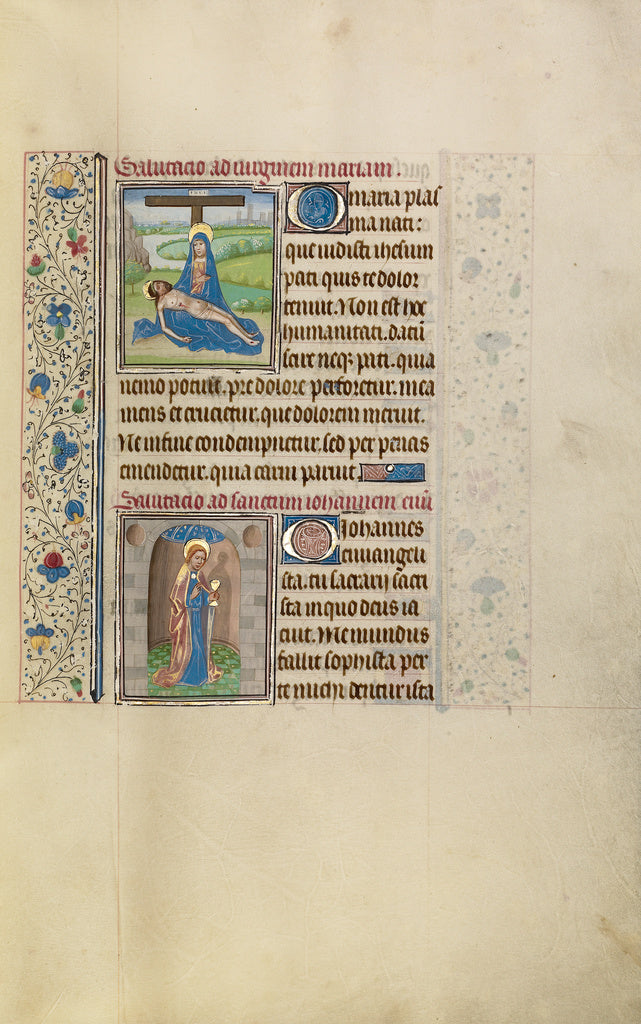 Salutacio ad virginem mariam.
O maria plas
ma nati:
que vidisti ihesum
pati quis te dolor
tenuit. Non est hoc
humanitati. datū
scire neqꝫ pati. quia
nemo potuit. pre dolore perforetur. mea
mens et crucietur. que dolorem meruit.
Ne in fine condempnetur. sed per penas
emendetur. quia carni paruit.
Salutacio ad sanctum iohannem euū
O Johannes
euuangeli
sta. tu sacrarii sacri
sta in quo deus ia
cuit. Me mundus
fallit sophista per
te michi dentur ista